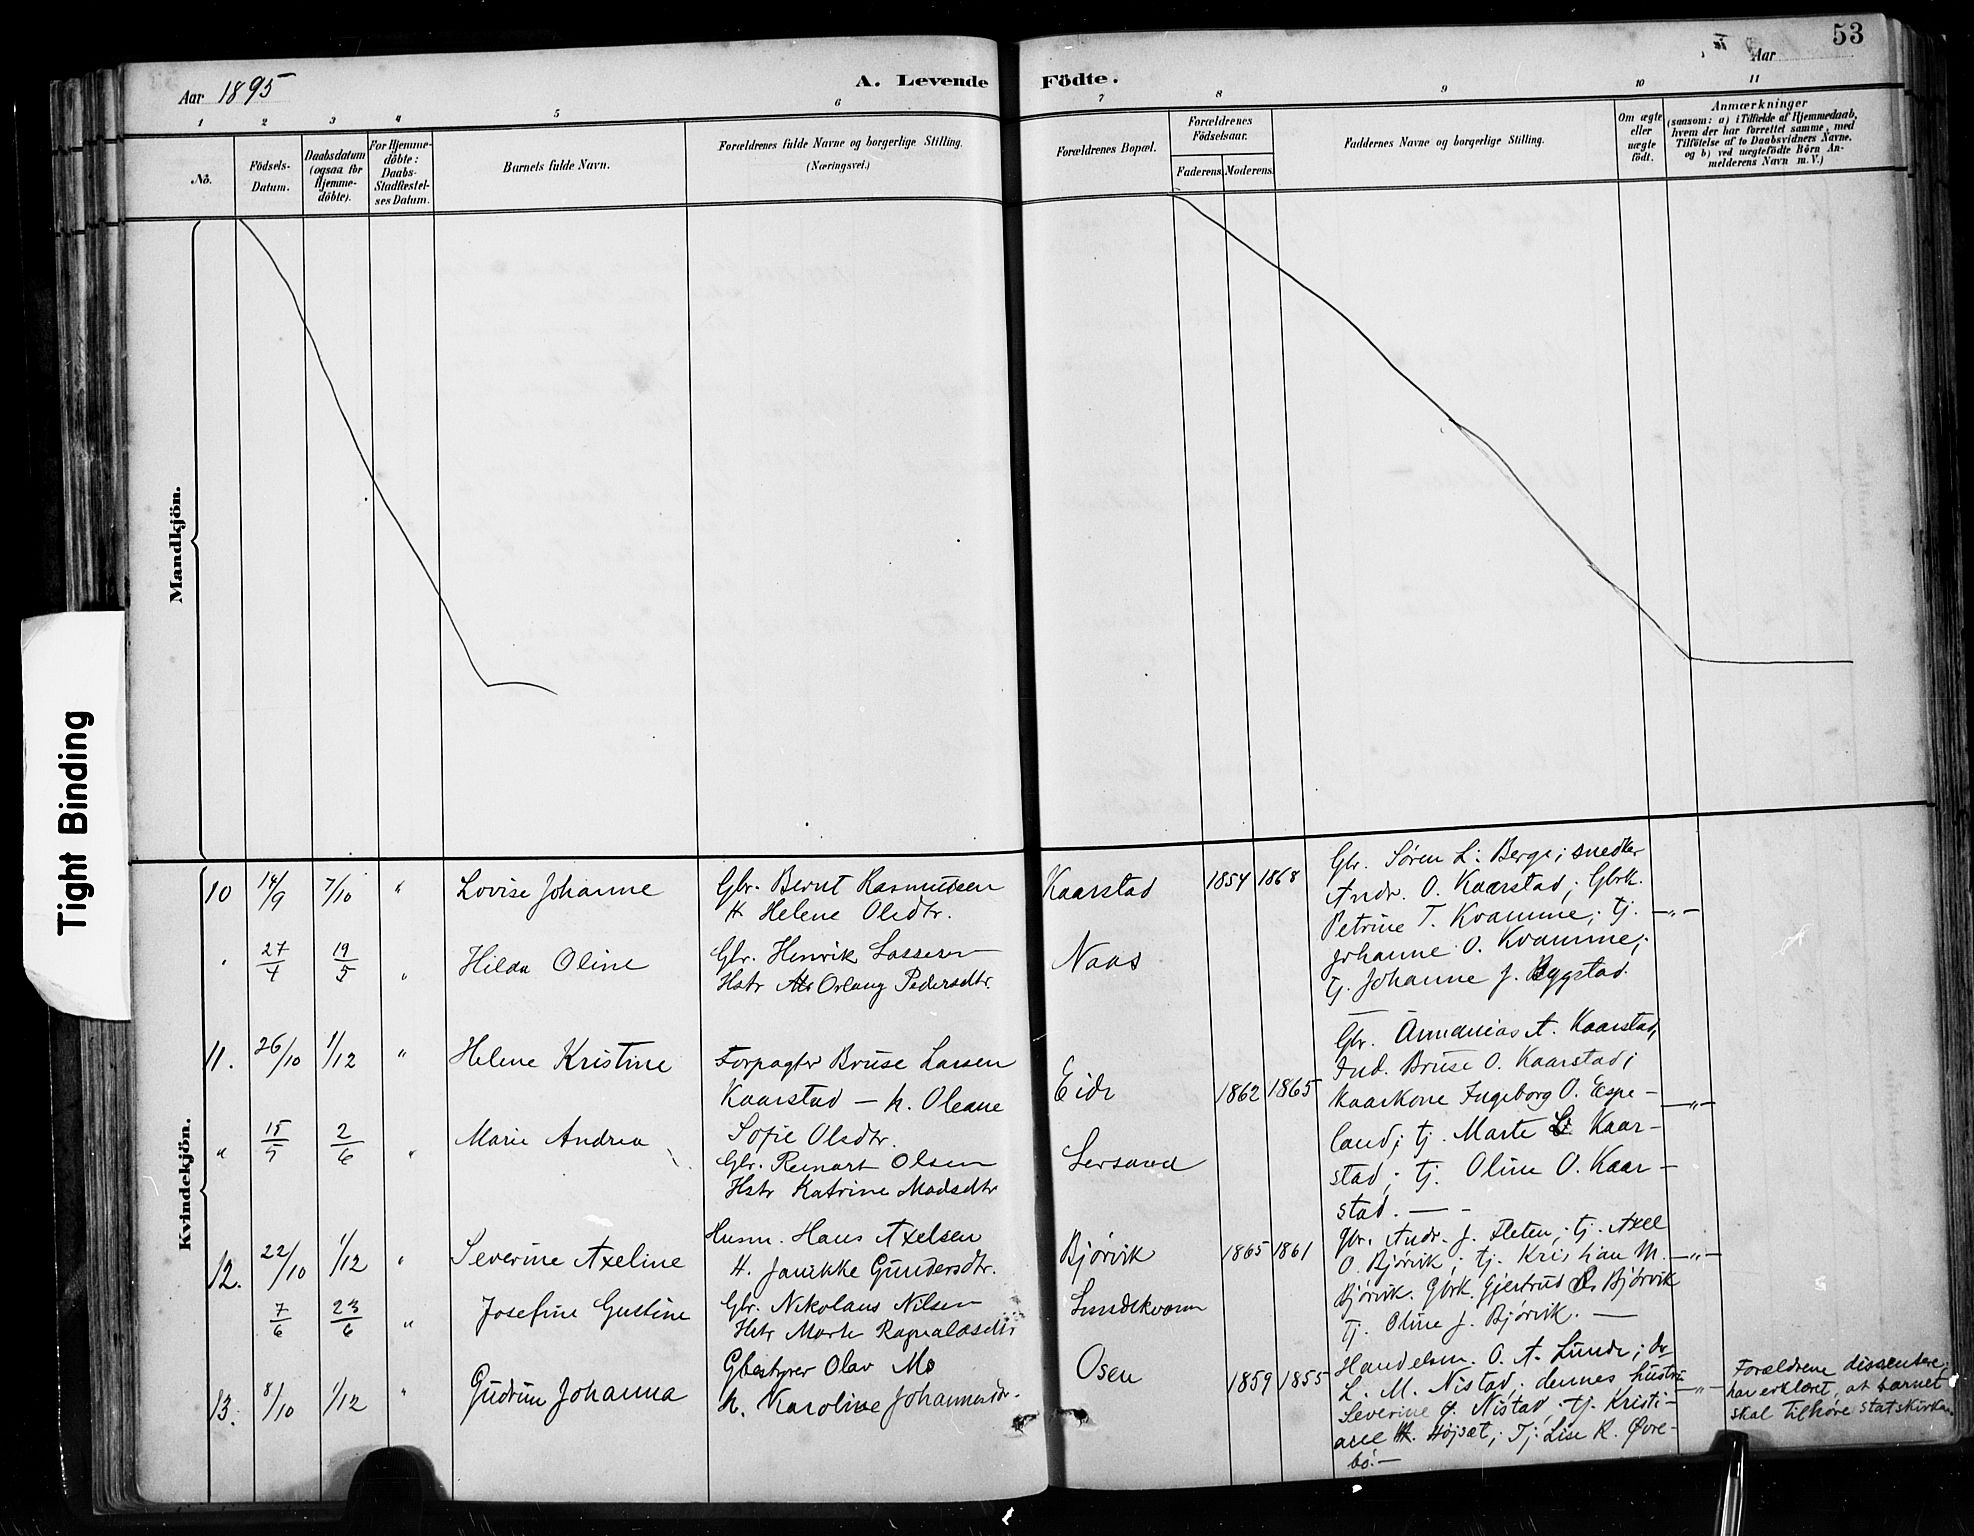 53
Aar 1895
A. Levende Födte.
Aar
1 2 3 4 5 6 7 8 9 10 11
No.
Födsels-Datum.
Daabsdatum (ogsaa for Hjemmedöbte).
For Hjemmedöbte: Daabs-Stadfæstelses Datum.
Barnets fulde Navn.
Forældrenes fulde Navne og borgerlige Stilling.
(Næringsvei.)
Forældrenes Bopæl.
Forældrenes Födselsaar.
Faderens. Moderens.
Faddernes Navne og borgerlige Stilling.
Om ægte eller uægte födt.
Anmærkninger
(saasom: a) i Tilfælde af Hjemmedaab,
hvem der har forrettet samme, med
Tilföielse af to Daabsvidners Navne,
og b) ved uægtefödte Börn An-
melderens Navn m. V.)
Mandkjön.
Tight Binding
Kvindekjön.
10 14/9 7/10 " Lovise Johanne
Gbr. Bernt Rasmussen
H. Helene Olsdtr.
Kaarstad 1854 1868
Gbr. Søren L. Berge; snedker
Andr. O. Kaarstad; Gbrk.
Petrine T. Kvamme; tj. —"—
Johanne O. Kvamme;
tj. Johanne J. Bygstad.
" 27/4 19/5 " Hilda Oline
Gbr. Henrik Lassesen
Hstr Orlaug Pedersdtr.
Naas
11. 26/10 1/12 " Helene Kristine
Forpagter Bruse Larsen
Kaarstad — h. Oleane
Sofie Olsdtr.
Eide 1862 1865
Gbr. Ananias A. Kaarstad;
Ind. Bruse O. Kaarstad;
Kaarkone Ingeborg O. Espe- —"—
land; tj. Marte Kaar-
stad; tj. Oline O. Kaar-
stad. —
" 15/5 2/6 " Marie Andrea
Gbr. Reinart Olsen
Hstr Katrine Madsdtr
Lersund
12. 22/10 1/12 " Severine Axeline
Husm. Hans Axelsen
H. Janikke Gundersdtr.
Bjørvik 1865 1861
Gbr. Andr. J. Fleten; tj. Axel
O. Bjørvik; tj. Kristian M. —"—
Bjørvik. Gbrk. Gjertrud Bjørvik
tj. Oline J. Bjørvik. —
7/6 23/6 " Josefine Gustine
Gbr. Nikolaus Nilsen
Hstr Marte Ragnaldsdtr
Lundekvam
13. 8/10 1/12 " Gudrun Johanna
Gbestyrer Olav Mo
h. Karoline Johannesdtr.
Osen 1859 1855
Handelsm. O. A. Lunde; do
L. M. Nistad; dennes hustru —"—
Severine Nistad; tj. Kristi-
ane Højsæt; Tj: Lise R. Øvre-
bö. —
Forældrene dissentere;
har erklæret, at barnet
skal tilhøre statskirken.